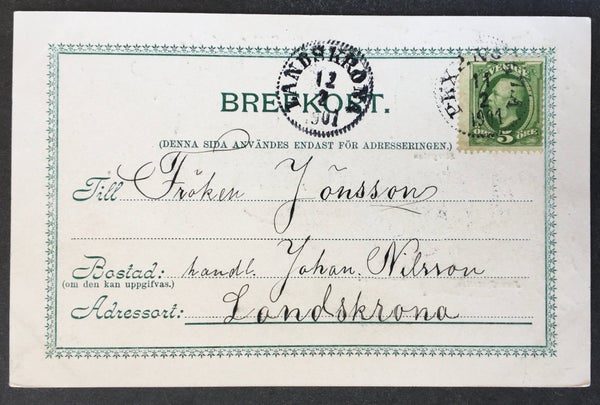 LANDSKRONA
12
2
1901
BREFKORT.
SVERIGE
11
2
1901
5 ÖRE
(DENNA SIDA ANVÄNDES ENDAST FÖR ADRESSERINGEN.)
Till Fröken Jönsson
Bostad: handl. Johan. Nilsson
(om den kan uppgifvas.)
Adressort: Landskrona